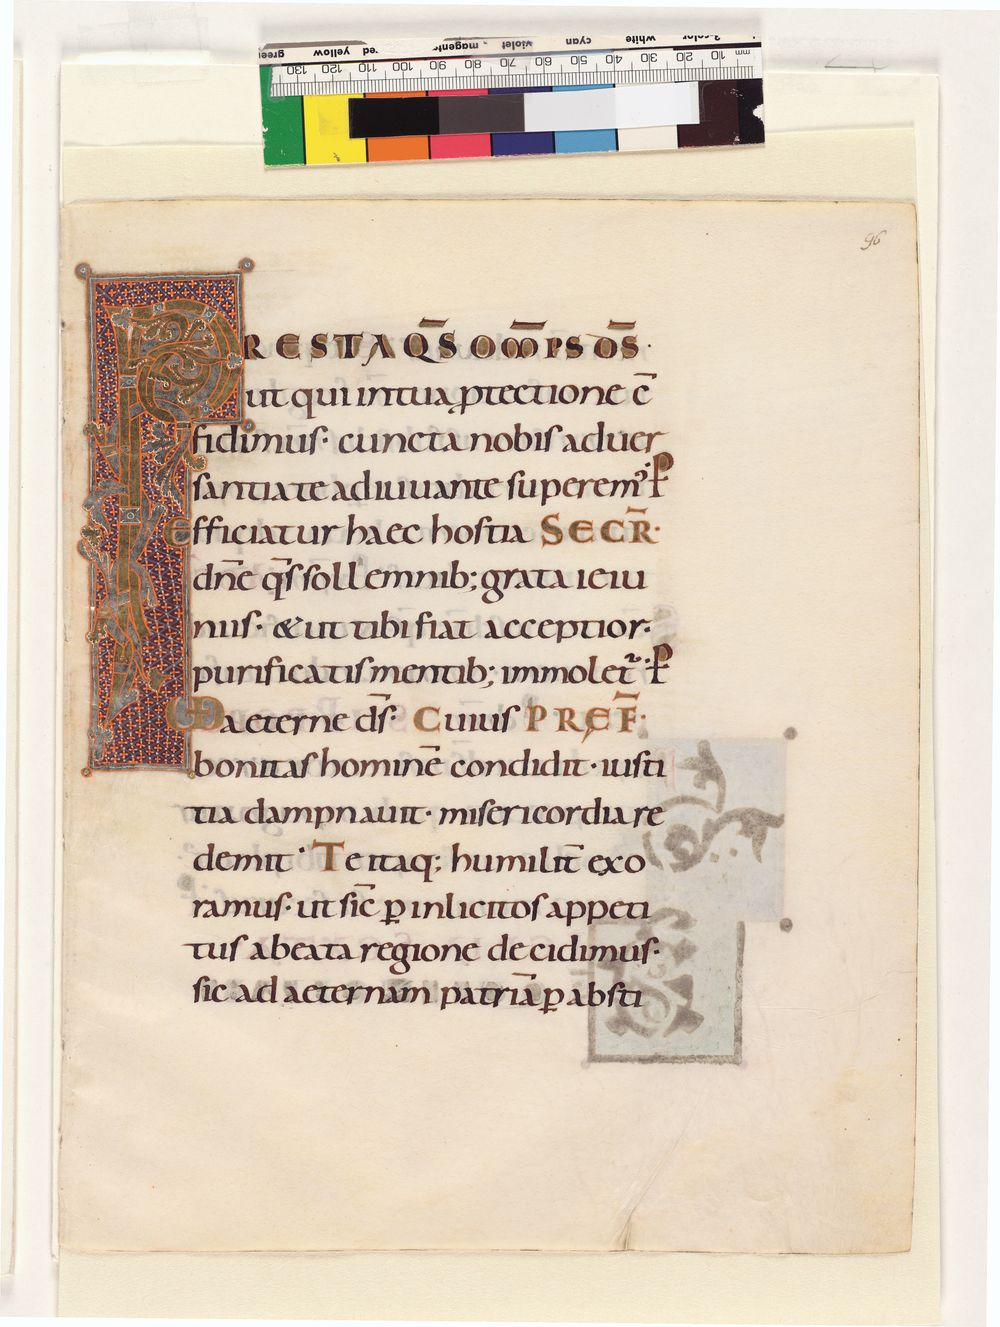 green yellow red magenta violet cyan white 3-color
mm 10 20 30 40 50 60 70 80 90 100 110 120 130
96
PRESTA Q̄S OM̄PS D̄S·
ut qui in tua ꝓtectione c̄
fidimus· cuncta nobis aduer
santia te adiuuante superem᷒· ꝑ
Efficiatur haec hostia SECR̄·
dn̄e q̄s sollemnib; grata ieiu
niis· & ut tibi fiat acceptior·
purificatis mentib; immolet᷑· ꝑ
aeterne d̄s· Cuius PREF̄·
bonitas hominē condidit· iusti
tia dampnauit· misericordia re
demit· Te itaq; humilit̄ exo
ramus· ut sic̄ ꝑ inlicitos appeti
tus a beata regione decidimus·
sic ad aeternam patriā ꝑ absti